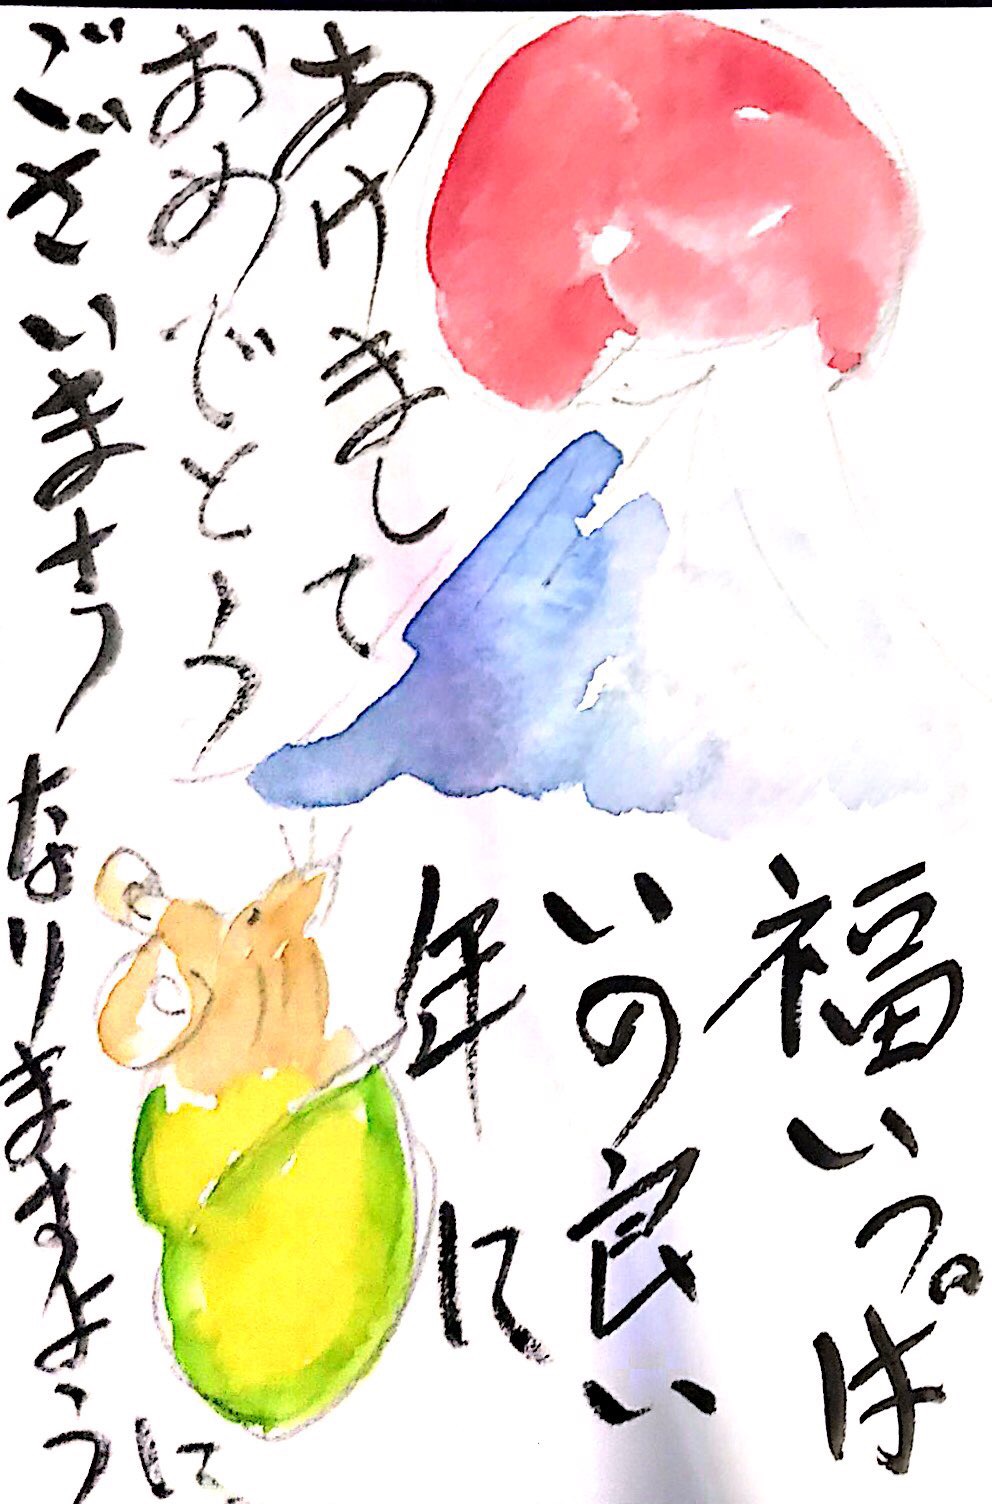 あけまして
おめでとう
ございます
福いっぱ
いの良い
年に
なりますように